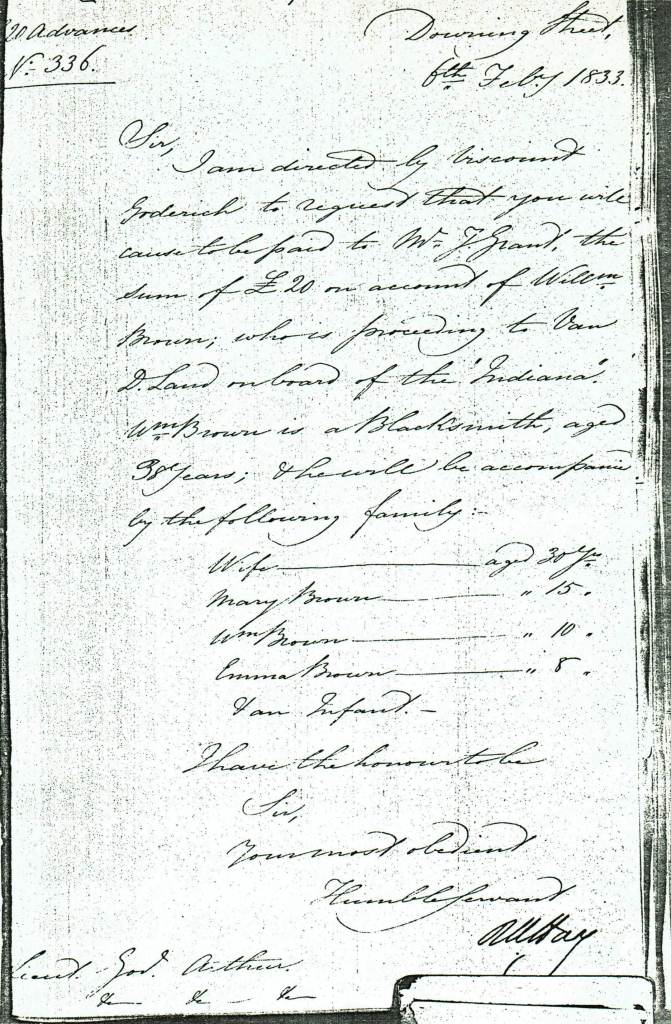 20 Advances
No. 336.
Downing Street,
6th Feby 1833.
Sir,
I am directed by Viscount
Goderich to request that you will
cause to be paid to Mr. J. Grant, the
sum of £20 on account of Willm
Brown; who is proceeding to Van
D. Land on board of the "Indiana".
Wm Brown is a Blacksmith, aged
38 Years; & he will be accompanie
by the following family:-
Wife — aged 30 Yrs
Mary Brown — " 15 "
Wm Brown — " 10 "
Emma Brown — " 8 "
& an Infant. —
I have the honour to be
Sir,
Your most obedient
Humble Servant
RW Hay
Lieut. Govr. Arthur.
&c &c &c